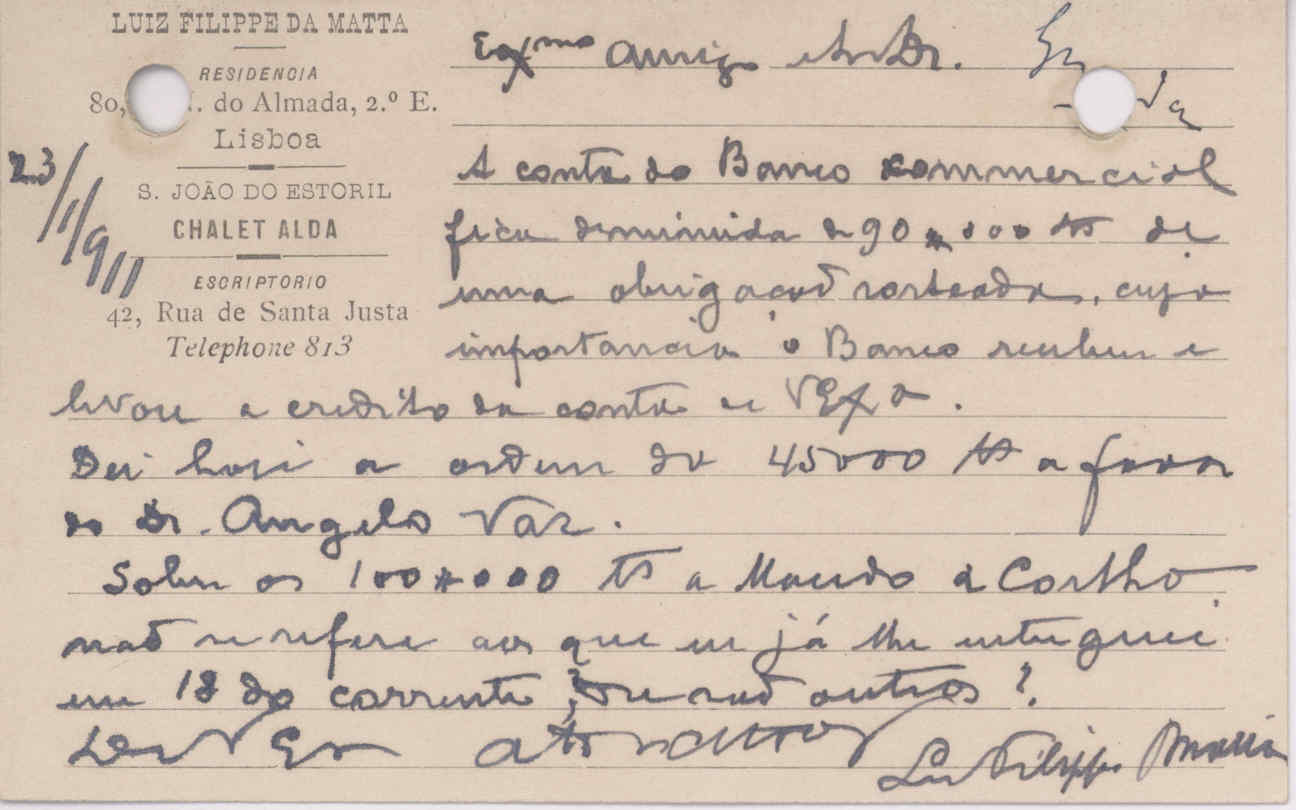 LUIZ FILIPPE DA MATTA
RESIDENCIA
80, do Almada, 2.º E.
Lisboa
S. JOÃO DO ESTORIL
CHALET ALDA
ESCRIPTORIO
42, Rua de Santa Justa
Telephone 813
23/1/911
Exmo amigo e Sr. Dr.
A conta do Banco Commercial
fica diminuida de 90$000 rs de
uma obrigação sorteada, cuja
importancia o Banco recebeu e
levou a credito da conta de VExa.
Dei hoje a ordem de 45000 rs a favor
do Dr. Angelo Vaz.
Sobre os 100$000 rs a Macedo e Coelho
não se refere aos que eu já lhe entreguei
em 18 do corrente? Ou são outros?
De VExa
Luiz Filippe Matta